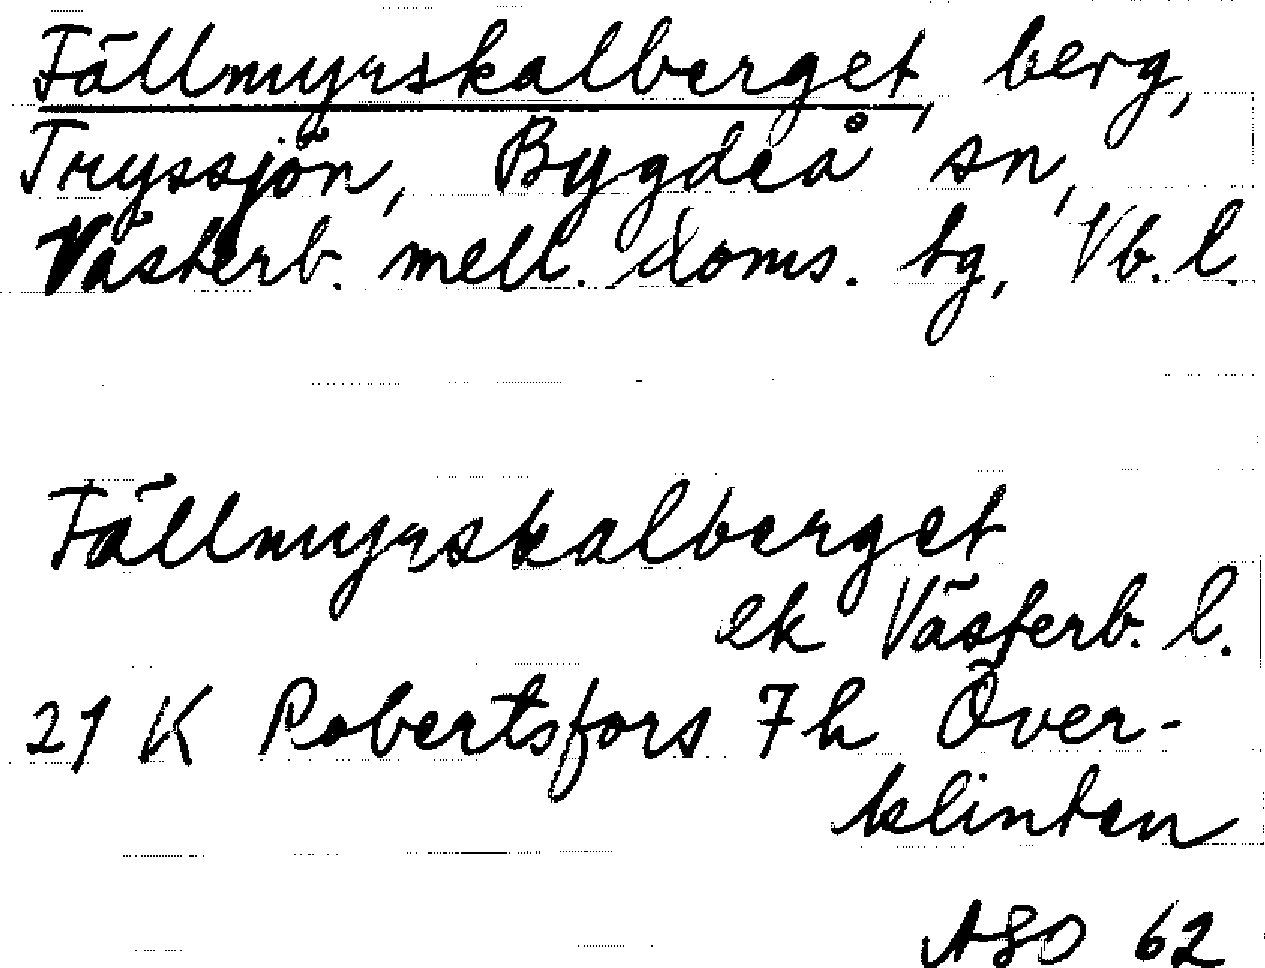 Fällmyrskalberget, berg,
Tryssjön, Bygdeå sn,
Västerb. mell. doms. tg, Vb. l.
Fällmyrskalberget
ek Västerb. l.
21 K Robertsfors 7 h Över-
klinten
ASO 62